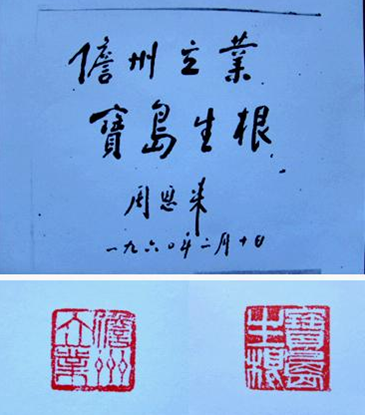 儋州立業
寶島生根
周恩來
一九六〇年二月十日
儋州立業
寶島生根